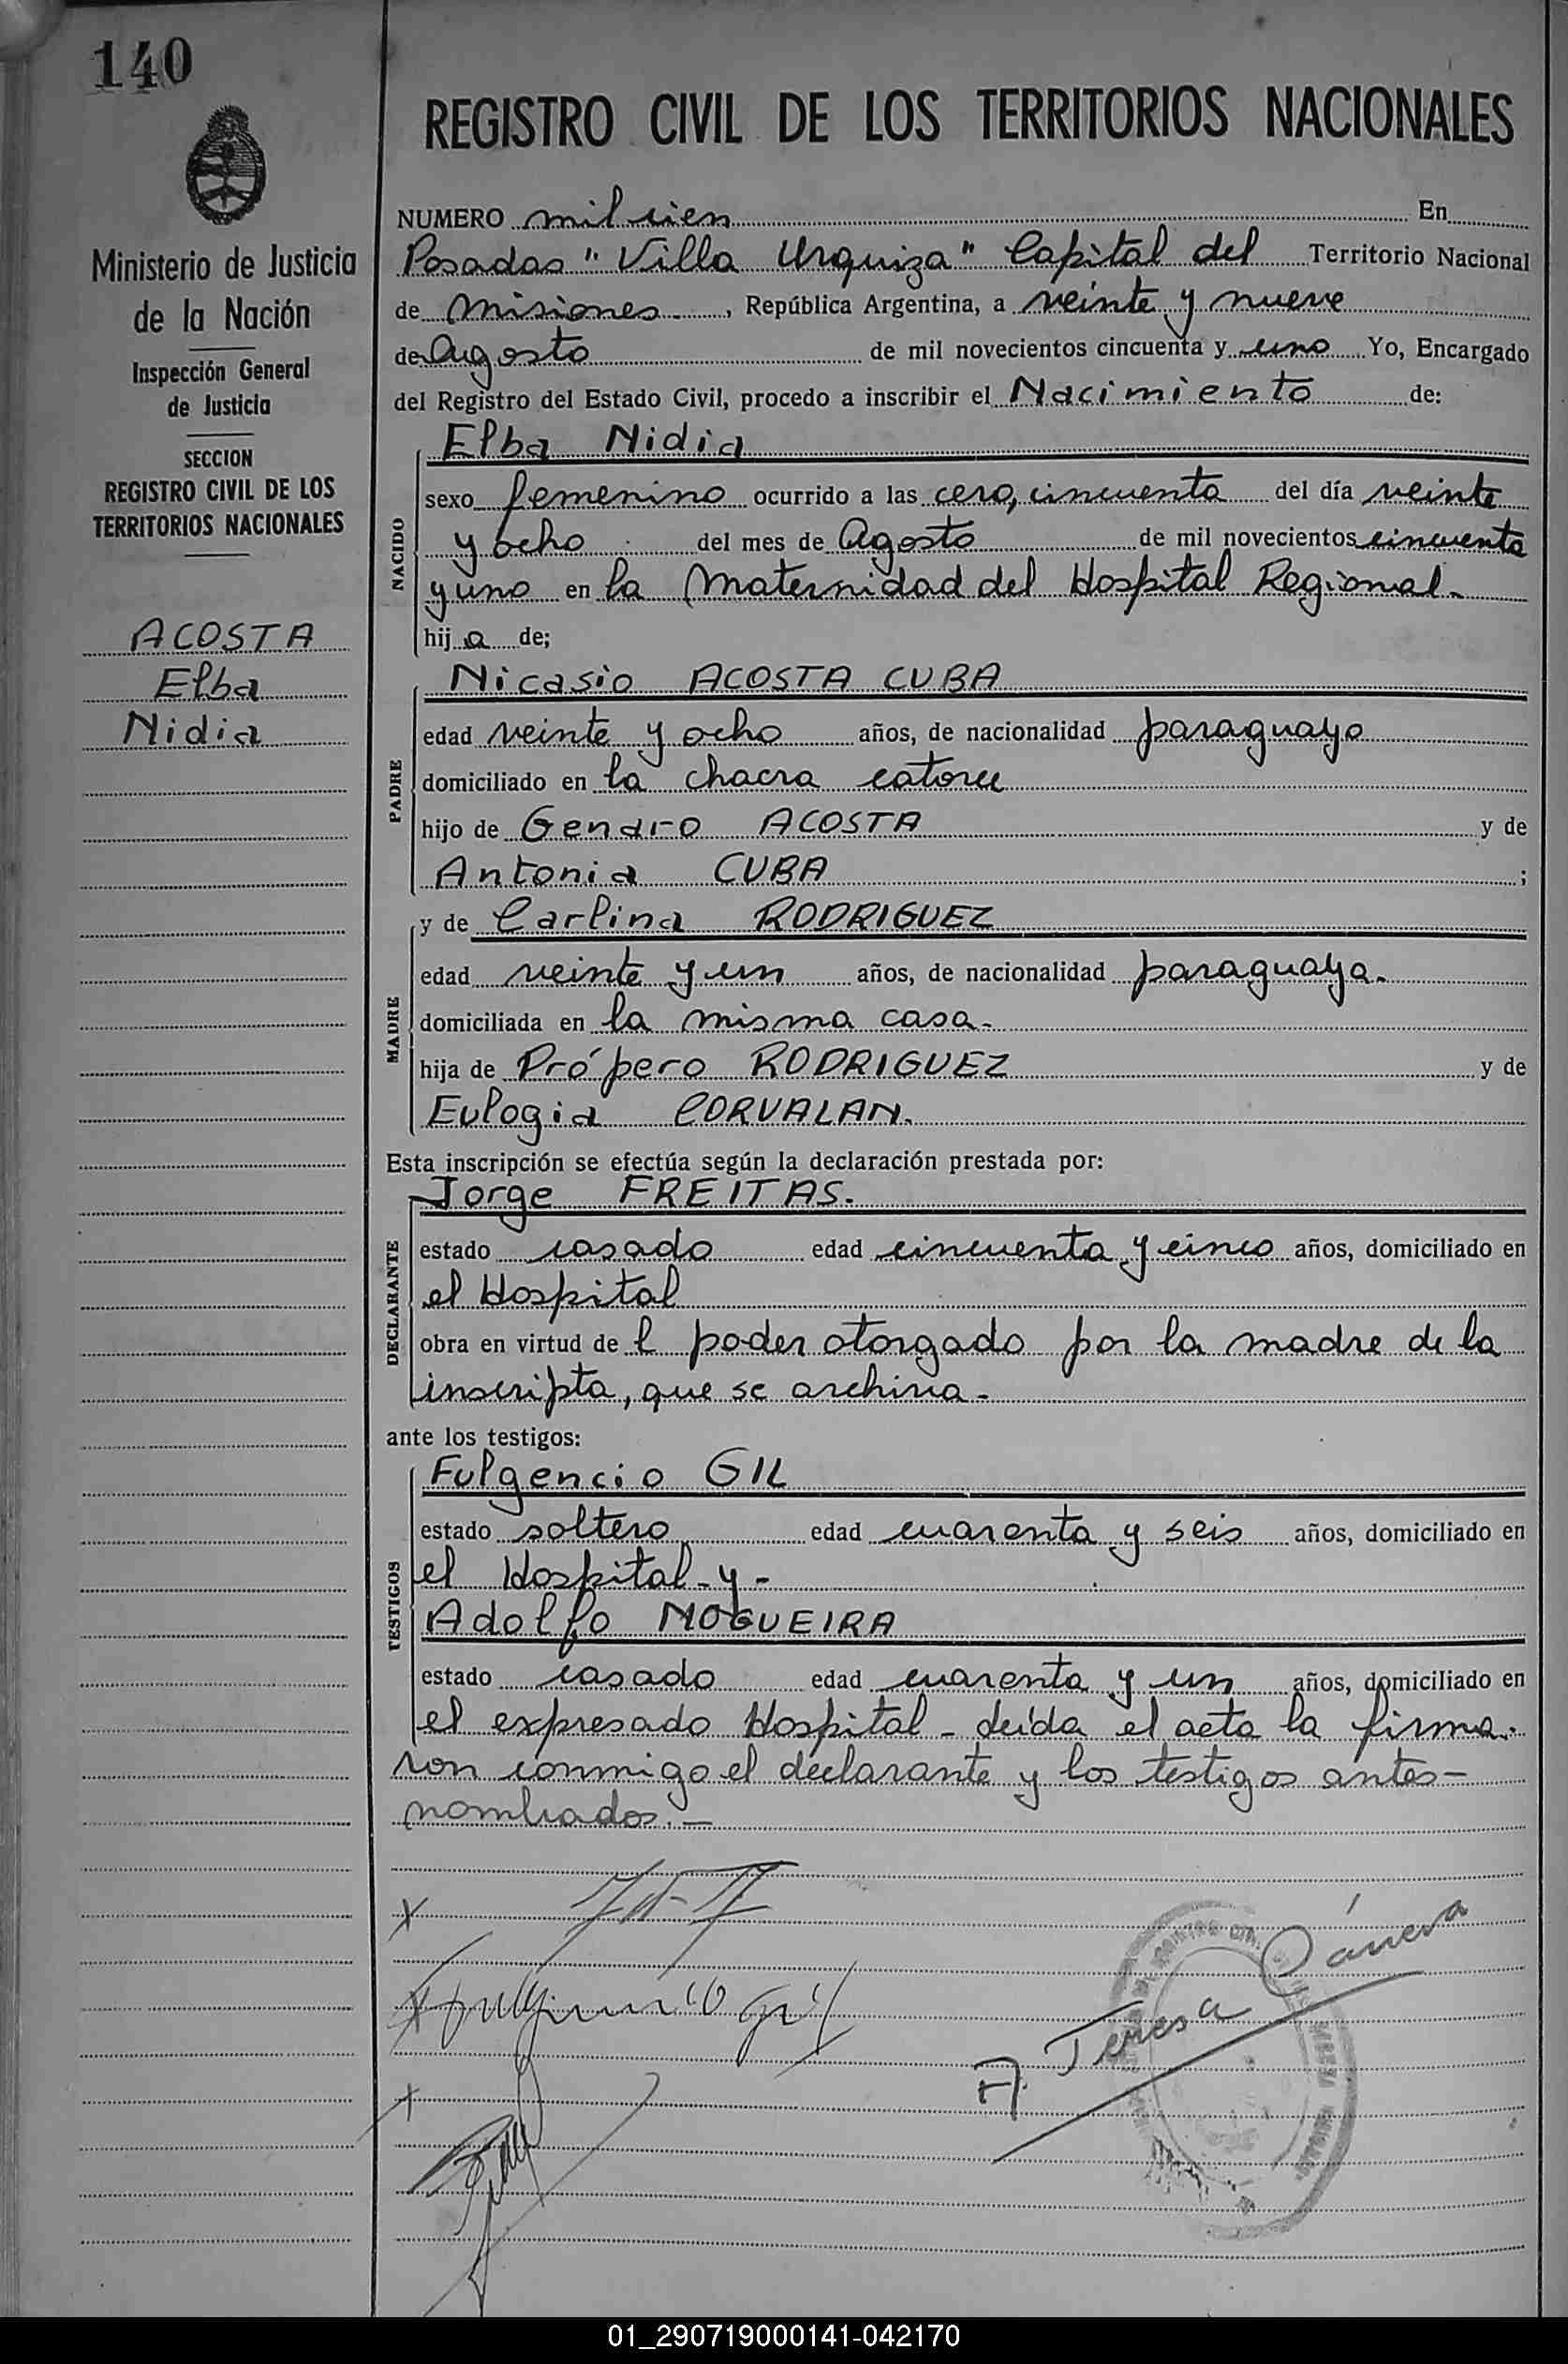 140
REGISTRO CIVIL DE LOS TERRITORIOS NACIONALES
Ministerio de Justicia
de la Nación
Inspección General
de Justicia
SECCION
REGISTRO CIVIL DE LOS
TERRITORIOS NACIONALES
ACOSTA
Elba
Nidia
NUMERO mil cien En
Posadas "Villa Urquiza" Capital del Territorio Nacional
de Misiones , República Argentina, a veinte y nueve
de Agosto de mil novecientos cincuenta y uno Yo, Encargado
del Registro del Estado Civil, procedo a inscribir el Nacimiento de:
NACIDO
Elba Nidia
sexo femenino ocurrido a las cero, cincuenta del día veinte
y ocho del mes de Agosto de mil novecientos cincuenta
y uno en la Maternidad del Hospital Regional.
hij a de;
PADRE
Nicasio ACOSTA CUBA
edad veinte y ocho años, de nacionalidad paraguayo
domiciliado en la chacra catorce
hijo de Genaro ACOSTA y de
Antonia CUBA ;
MADRE
y de Carlina RODRIGUEZ
edad veinte y un años, de nacionalidad paraguaya.
domiciliada en la misma casa.
hija de Própero RODRIGUEZ y de
Eulogia CORVALAN.
Esta inscripción se efectúa según la declaración prestada por:
DECLARANTE
Jorge FREITAS.
estado casado edad cincuenta y cinco años, domiciliado en
el Hospital
obra en virtud de l poder otorgado por la madre de la
inscripta, que se archiva.
ante los testigos:
TESTIGOS
Fulgencio GIL
estado soltero edad cuarenta y seis años, domiciliado en
el Hospital - y -
Adolfo NOGUEIRA
estado casado edad cuarenta y un años, domiciliado en
el expresado Hospital - Leída el acta la firma.
ron conmigo el declarante y los testigos antes-
nombrados.-
Fulgencio Gil
A. Teresa Cáneva
01_290719000141-042170